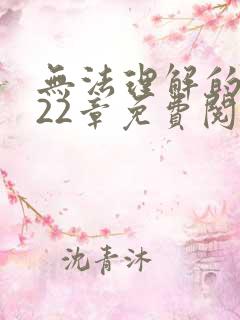 無法理解的
22章免費閱
沈青沐